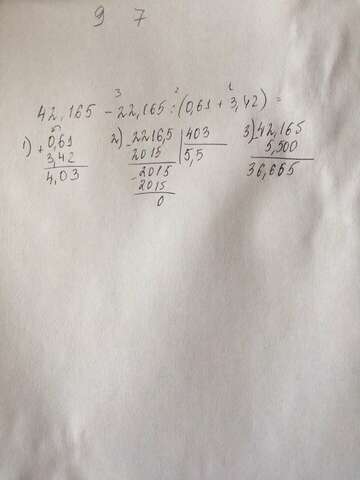 9 7
3 2 1
42,165 - 22,165 : (0,61 + 3,42) =
1) + 0,61 2) - 2216,5 | 403 3) - 42,165
3,42 2015 5,5 5,500
4,03 - 2015 36,665
2015
0